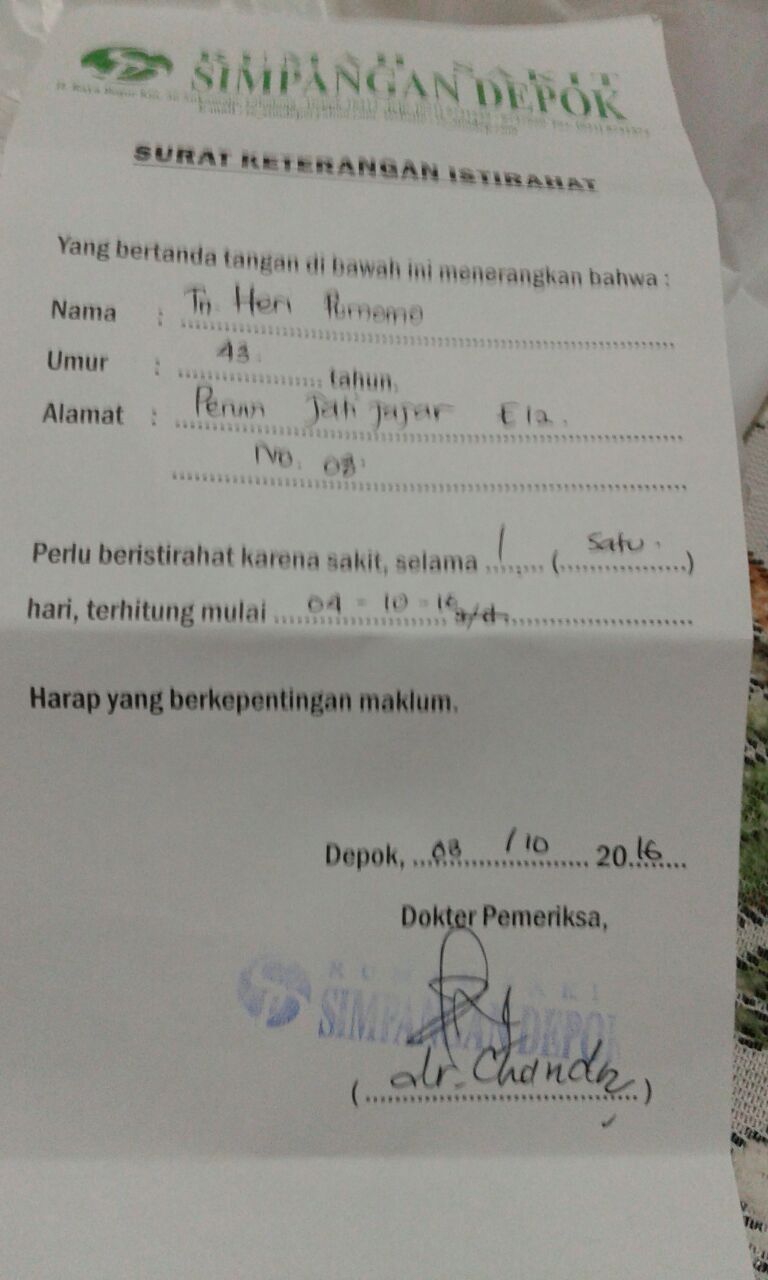 RUMAH SAKIT
SIMPANGAN DEPOK
Jl. Raya Bogor Km.
SURAT KETERANGAN ISTIRAHAT
Yang bertanda tangan di bawah ini menerangkan bahwa :
Nama : Tn. Heri Purnomo
Umur : 43 tahun,
Alamat : Perum Jatijajar E12.
No. 08
Perlu beristirahat karena sakit, selama 1 (satu.)
hari, terhitung mulai 04 - 10 - 16 s/d
Harap yang berkepentingan maklum.
Depok, 03 / 10 2016
Dokter Pemeriksa,
RUMAH SAKIT
SIMPANGAN DEPOK
(dr. Chandra)